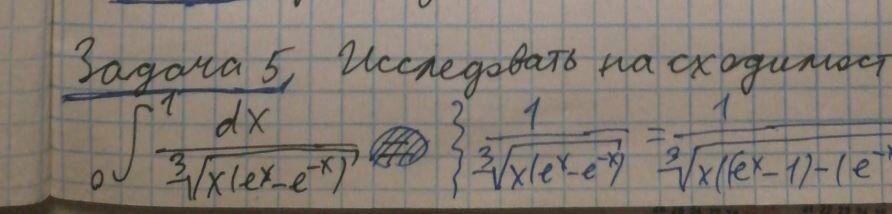 Задача 5. Исследовать на сходимост
∫₀¹ dx / ∛(x(eˣ-e⁻ˣ)) } 1 / ∛(x(eˣ-e⁻ˣ)) = 1 / ∛(x((eˣ-1)-(e⁻ˣ